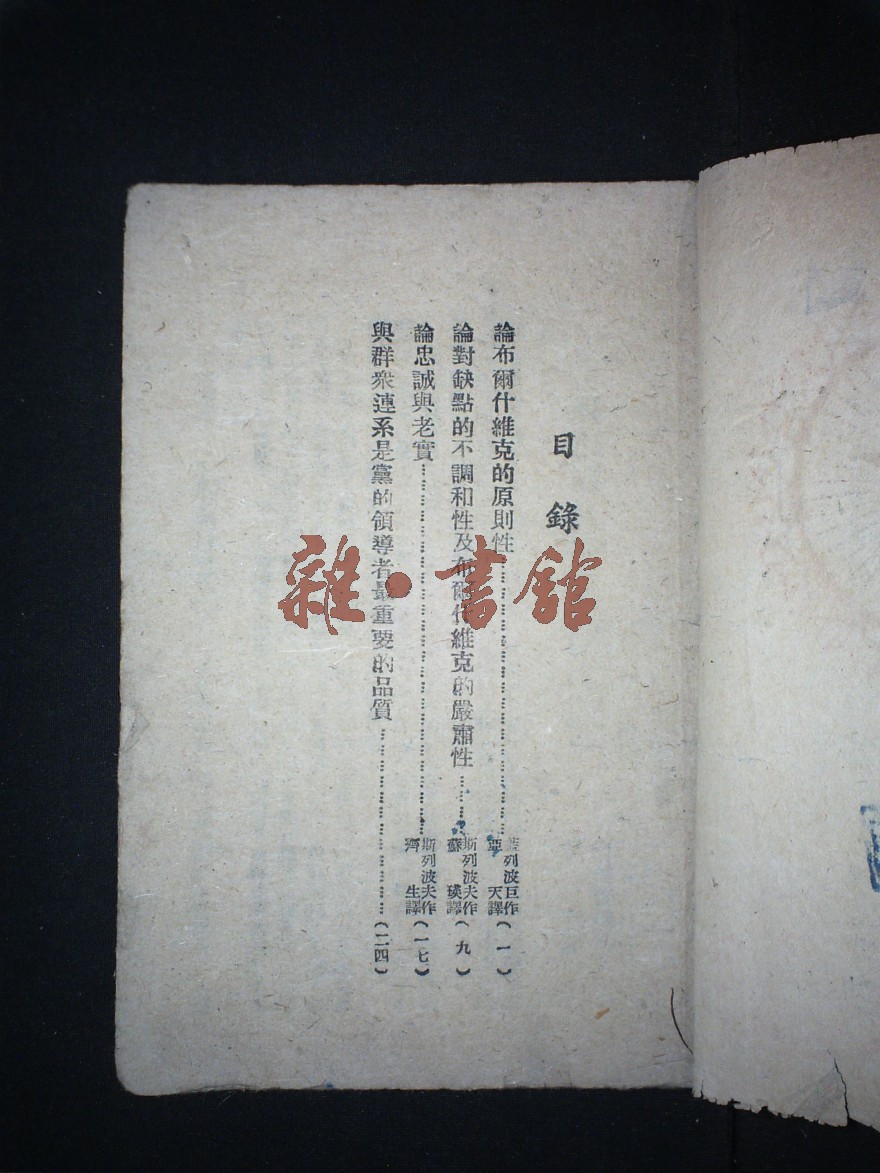 目錄
論布爾什維克的原則性
列波巨作
亞天譯
(一)
論對缺點的不調和性及布爾什維克的嚴肅性
斯列波夫作
蘇瑛譯
(九)
論忠誠與老實
斯列波夫作
濟生譯
(一七)
與群衆連系是黨的領導者最重要的品質
(二四)
雜·書舘